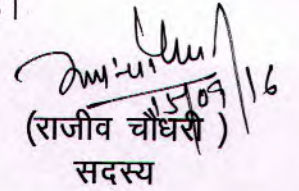 15/09/16
(राजीव चौधरी )
सदस्य